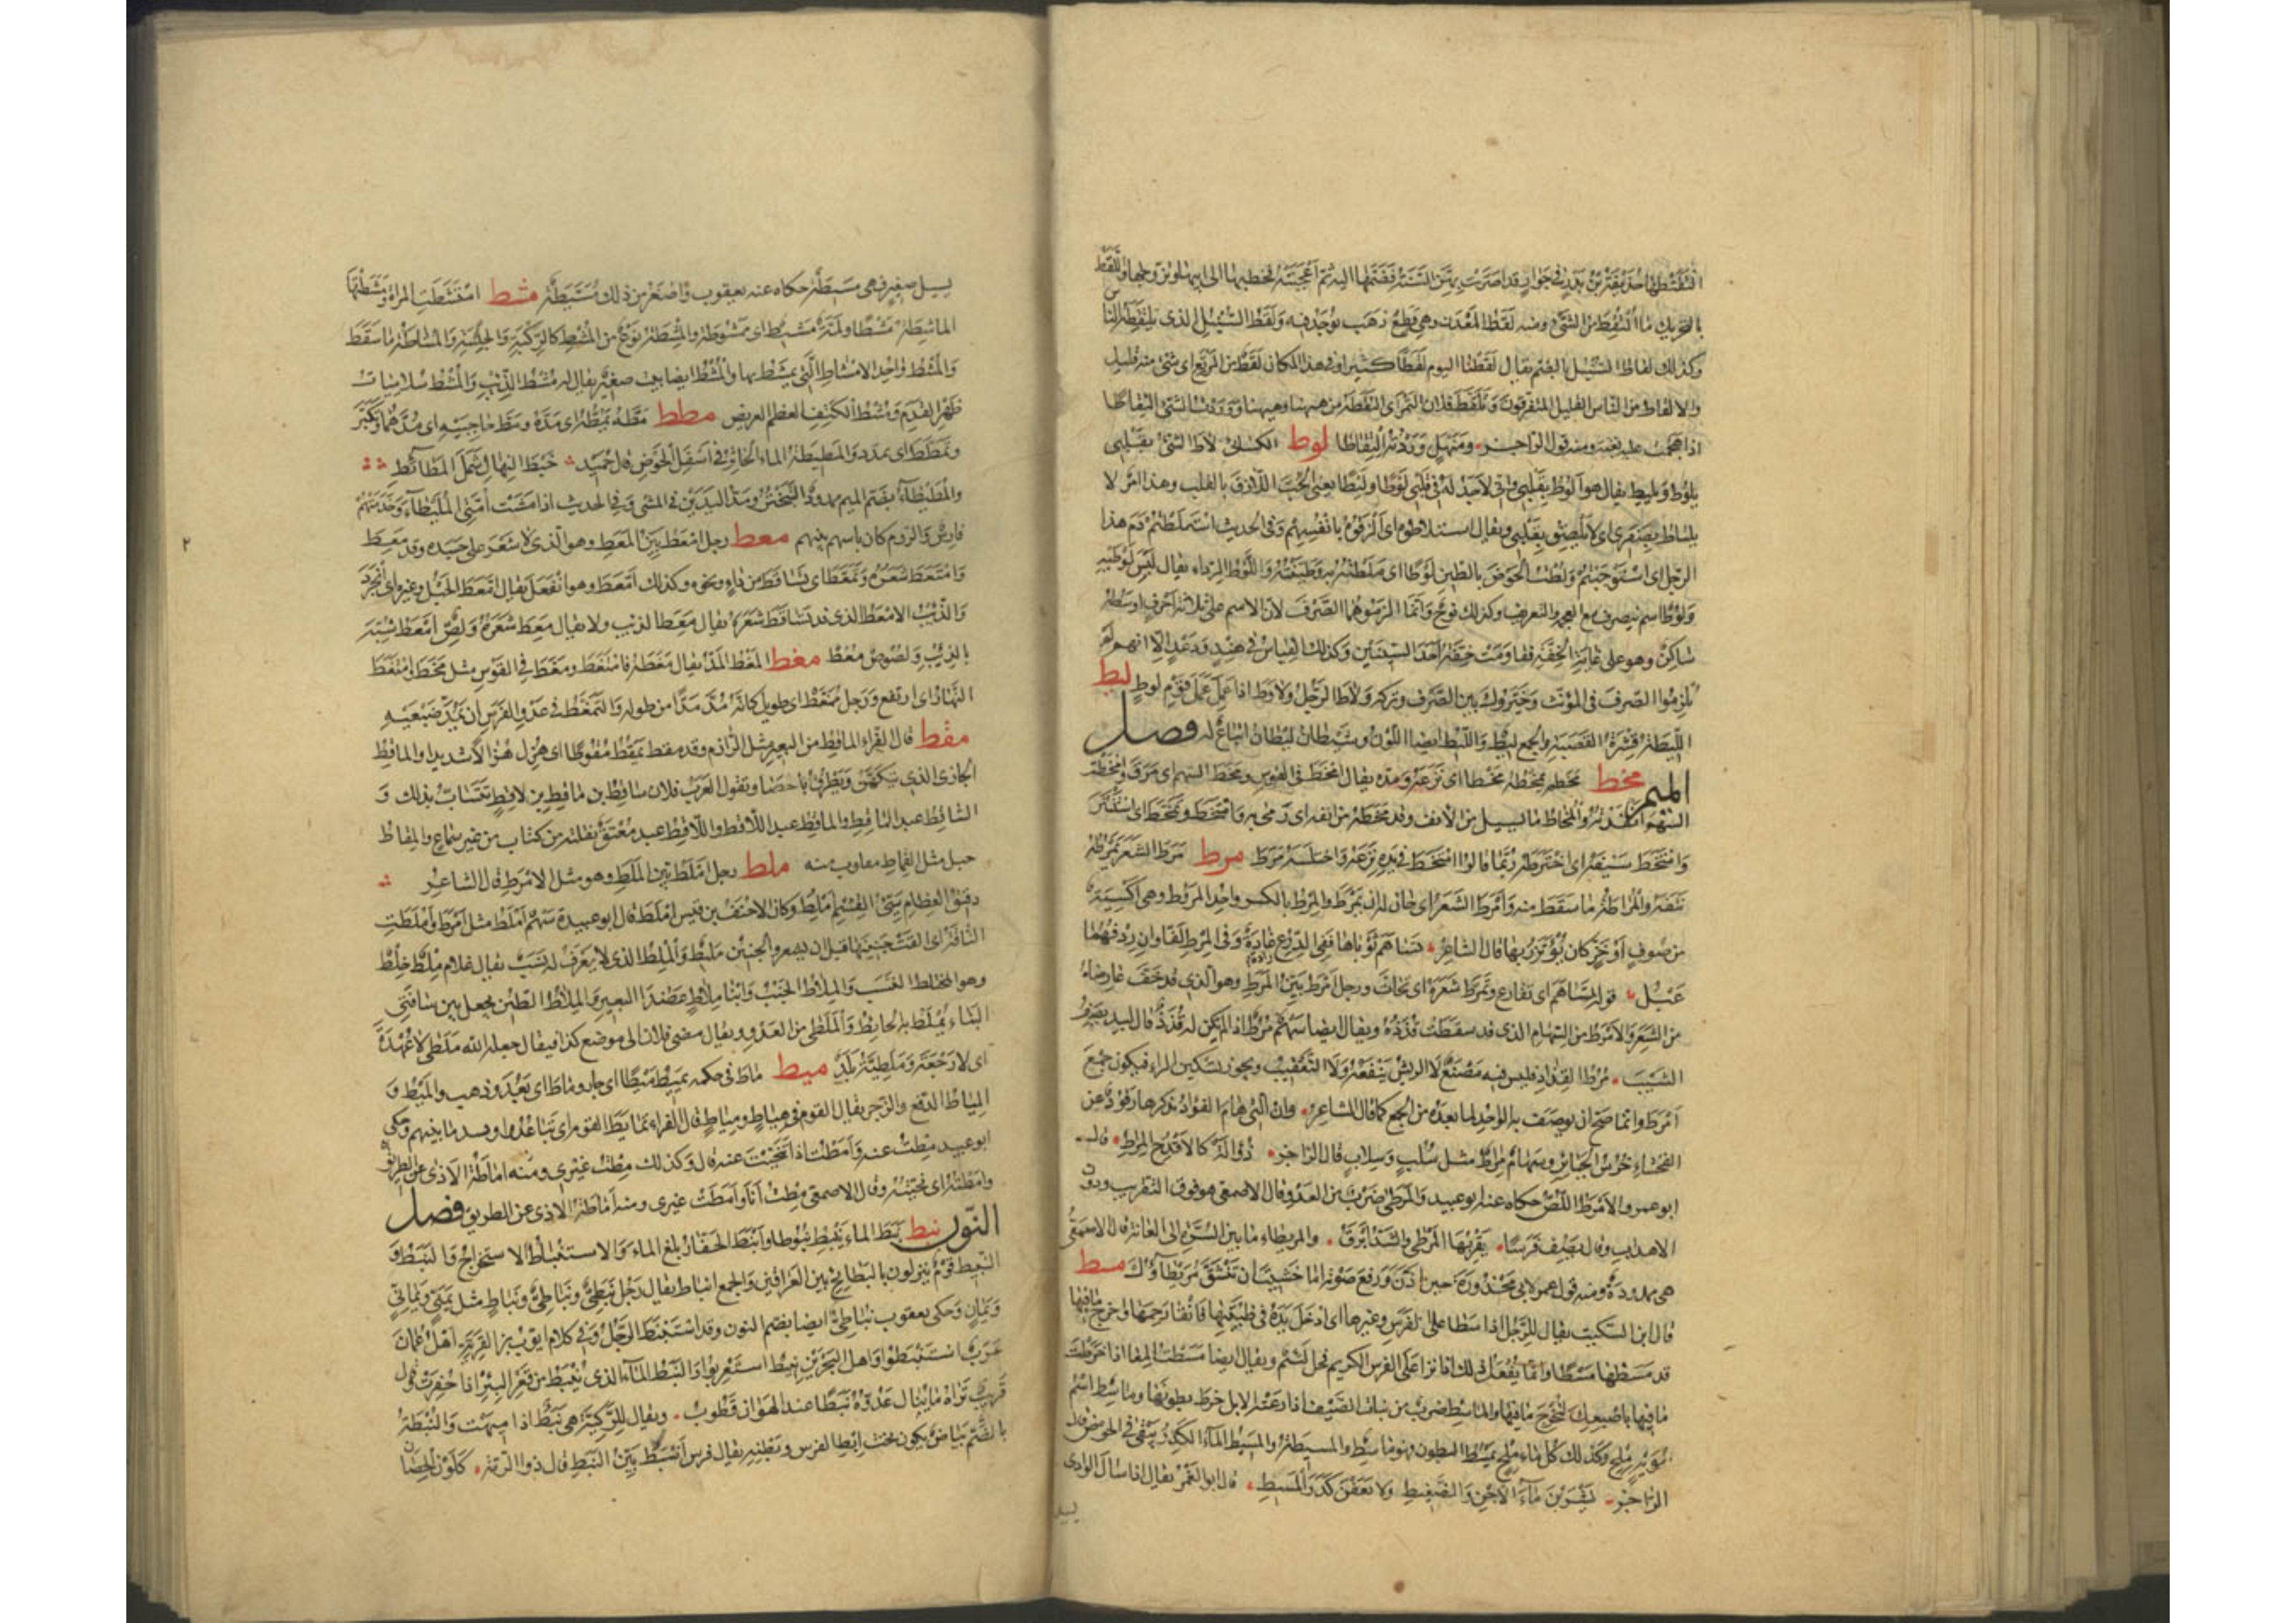 التقطها حذيفة بن بدر في جوار قد اضرت بهن السنة فضمها اليه ثم اعجبته فخطبها الى ابيها وتزوجها واللقط
بالتحريك ما التقط من الشيء ومنه لقط المعدن وهي قطع ذهب توجد فيه ولقط السنبل الذي يلتقطه الناس
وكذلك لقاط السنبل بالضم يقال لقطنا اليوم لقطا كثيرا وفي هذا المكان لقط من المرتع اي شيء منه قليل
والالقاط من الناس القليل المتفرقون وتلقط فلان التمر اي التقطه من ههنا وههنا ووردت الشيء التقاطا
اذا هجمت عليه بغتة ومنه قول الراجز ومنهل وردته التقاطا لوط الكسائي لاط الشيء بقلبي
يلوط ويليط يقال هو الوط بقلبي واليط واني لاجد له في قلبي لوطا وليطا يعني الحب اللازق بالقلب وهذا امر لا
يلتاط بصفري اي لا يلصق بقلبي ويقال استلاطوه اي الزقوه بانفسهم وفي الحديث استلطتم دم هذا
الرجل اي استوجبتم ولطت الحوض بالطين لوطا اي ملطته به وطينته واللوط الرداء يقال لبس لوطيه
ولوط اسم ينصرف مع العجمة والتعريف وكذلك نوح وانما الزموهما الصرف لان الاسم على ثلاثة احرف اوسطه
ساكن وهو على غاية الخفة فقاومت خفته احد السببين وكذلك القياس في هند ودعد الا انهم لم
يلزموا الصرف في المؤنث وخيروك بين الصرف وتركه ولاط الرجل ولاوط اذا عمل عمل قوم لوط ليط
الليطة قشرة القصبة والجمع ليط والليط ايضا اللون وشيطان ليطان اتباع له فصل
الميم مخط مخطه يمخطه مخطا اي نزعه ومده يقال امخط في القوس ومخط السهم اي مرق وامخطت
السهم انفذته والمخاط ما يسيل من الانف وقد مخطه من انفه اي رمى به وامتخط وتمخط اي استنثر
وامتخط سيفه اي اخترطه وربما قالوا امتخط ما في يده نزعه واختلسه مرط مرط الشعر يمرطه
نتفه والمراطة ما سقط منه وامرط الشعر اي حان له ان يمرط والمرط بالكسر واحد المروط وهي اكسية
من صوف او خز كان يؤتزر بها قال الشاعر تساهم ثوباها ففي الدرع غادة وفي المرط لفاوان ردفهما
عبل قوله تساهم اي تقارع وتمرط شعره اي تحات ورجل امرط بين المرط وهو الذي قد خف عارضاه
من الشعر والامرط من السهام الذي قد سقطت قذذه ويقال ايضا سهم مرط اذا لم يكن له قذذ قال لبيد يصف
الشيب مرط القذاذ فليس فيه مصنع لا الريش ينفعه ولا التعقيب ويجوز تسكين الراء فيكون جمع
امرط وانما صح ان يوصف به الواحد لما بعده من الجمع كما قال الشاعر وان التي هام الفؤاد بذكرها رقود عن
الفحشاء خرس الجبائر وسهام مراط مثل سلب وسلاب قال الراجز ذؤالة كالاقدح المراط قال
ابو عمرو والامرط اللص حكاه عنه ابو عبيد والمرطى ضرب من العدو قال الاصمعي هو فوق التقريب ودون
الاهذاب وقال يصف فرسا يقربها المرطى والشد ابراق والمريطاء ما بين السرة الى العانة قال الاصمعي
هي ممدودة ومنه قول عمر لابي محذورة حين اذن ورفع صوته اما خشيت ان تنشق مريطاؤك مسط
قال ابن السكيت يقال للرجل اذا سطا على الفرس وغيرها اي ادخل يده في ظبيتها فانقى رحمها واخرج ما فيها
قد مسطها مسطا وانما يفعل ذلك اذا نزا على الفرس الكريم فحل لئيم ويقال ايضا مسطت المعا اذا خرطت
ما فيها باصبعك لتخرج ما فيها والماسط ضرب من نبات الصيف اذا رعته الابل خرط بطونها وماسط اسم
مويه ملح وكذلك كل ماء ملح يمسط البطون فهو ماسط والمسيطة والمسيط الماء الكدر يبقى في الحوض قال
الراجز يشربن ماء الاجن والضغيط ولا يعفن كدر المسيط قال ابو الغمر يقال اذا سال الوادي
يسيل
يسيل صغير فهي مسيطة حكاه عنه يعقوب واصغر من ذلك مسيطة مشط امتشطت المراة ومشطتها
الماشطة مشطا ولمة مشيط اي ممشوطة والمشطة نوع من المشط كالركبة والجلسة والمشاطة ما سقط
والمشط واحد الامشاط التي يمشط بها والمشط ايضا نبت صغير يقال له مشط الذئب والمشط سلاميات
ظهر القدم ومشط الكتف العظم العريض مطط مطه يمطه اي مده ومط حاجبيه اي مدهما وتكبر
وتمطط اي تمدد والمطيطة الماء الخاثر في اسفل الحوض قال حميد خبط النهال سمل المطائط
والمطيطاء بضم الميم ممدود التبختر ومد اليدين في المشي وفي الحديث اذا مشت امتي المطيطاء وخدمتهم
فارس والروم كان باسهم بينهم معط رجل امعط بين المعط وهو الذي لا شعر على جسده وقد معط
وامتعط شعره وتمعط اي تساقط من داء ونحوه وكذلك امعط وهو انفعل يقال امعط الحبل وغيره اي انجرد
والذئب الامعط الذي قد تساقط شعره يقال معط الذئب ولا يقال معط شعره ولص امعط شبه
بالذئب ولصوص معط مغط المغط المد يقال مغطه فامتغط ومغط في القوس مثل مخط وامتغط
النهار اي ارتفع ورجل ممغط اي طويل كانه مد مدا من طوله والتمغط في عدو الفرس ان يمد ضبعيه
مقط قال الفراء الماقط من البعير مثل الرازم وقد مقط يمقط مقوطا اي هزل هزالا شديدا والماقط
الحازي الذي يتكهن ويطرق بالحصا وتقول العرب فلان ساقط بن ماقط بن لاقط تتساب بذلك و
الساقط عبد الماقط والماقط عبد اللاقط واللاقط عبد معتق نقلته من كتاب من غير سماع والمقاط
حبل مثل القماط مقلوب منه ملط رجل املط بين الملط وهو مثل الامرط قال الشاعر
دقيق العظام سيئ القشم املط وكان الاحنف بن قيس املط قال ابو عبيدة سهم املط مثل امرط واملطت
الناقة اي القت جنينها قبل ان يشعر والجنين مليط والملط الذي لا يعرف له نسب يقال غلام ملط خلط
وهو المختلط النسب والملاط الجنب وابنا ملاط عضدا البعير والملاط الطين يجعل بين سافتي
البناء يملط به الحائط والملطى من العدو ويقال مضى فلان الى موضع كذا فيقال جعله الله ملطى لا عهدة
اي لا رجعة وملطية بلد ميط ماط في حكمه يميط ميطا اي جار وماط اي بعد وذهب والميط و
المياط الدفع والزجر يقال القوم في هياط ومياط قال الفراء تمايط القوم اي تباعدوا وفسد ما بينهم وحكى
ابو عبيد مطت عنه وامطت اذا تنحيت عنه قال وكذلك مطت غيري ومنه اماطة الاذى عن الطريق
وامطته اي نحيته وقال الاصمعي مطت انا وامطت غيري ومنه اماطة الاذى عن الطريق فصل
النون نبط نبط الماء ينبط نبوطا وانبط الحفار بلغ الماء والاستنباط الاستخراج والنبط و
النبيط قوم ينزلون بالبطائح بين العراقين والجمع انباط يقال رجل نبطي ونباطي ونباط مثل يمني ويماني
ويمان وحكى يعقوب نباطي ايضا بضم النون وقد استنبط الرجل وفي كلام ايوب بن القرية اهل عمان
عرب استنبطوا واهل البحرين نبيط استعربوا والنبط الماء الذي ينبط من قعر البئر اذا حفرت قال
قريب تراه ما ينال عدوه نبطا عند الهوان قطوب ويقال للركية هي نبط اذا اميهت والنبطة
بالضم بياض يكون تحت ابط الفرس وبطنه يقال فرس انبط بين النبط قال ذو الرمة كلون الحصان
٢